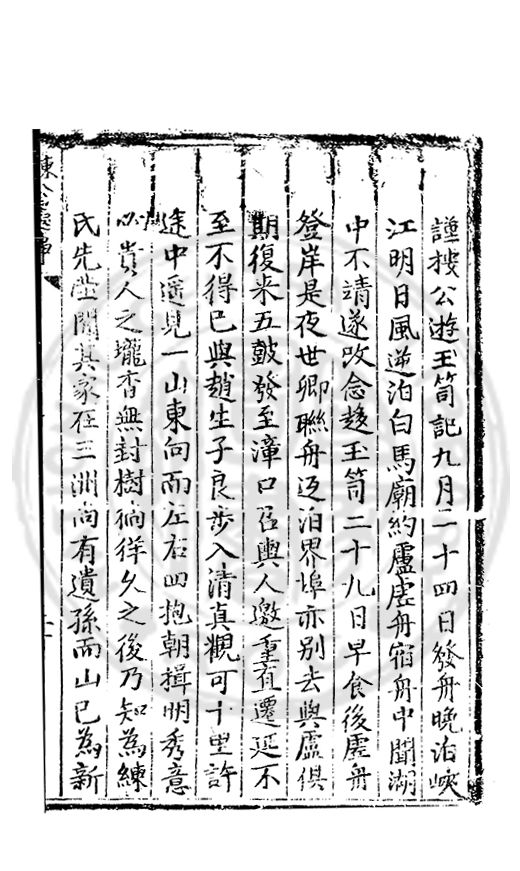 謹按公遊玉笥記九月二十四日發舟晚泊峽
江明日風逆泊白馬廟約廬虛舟宿舟中聞湖
中不靖遂改念趍玉笥二十九日早食後虛舟
登岸是夜世卿聯舟返泊界埠亦別去與盧俱
期復来五鼓發至漳口召輿人邀重直遷延不
至不得已與趙生子良步入清真觀可十里許
途中遥見一山東向而左右四抱朝揖明秀意
必貴人之壠杳無封樹徜徉久之後乃知為練
氏先塋聞其家在三洲尚有遺孫而山已為新